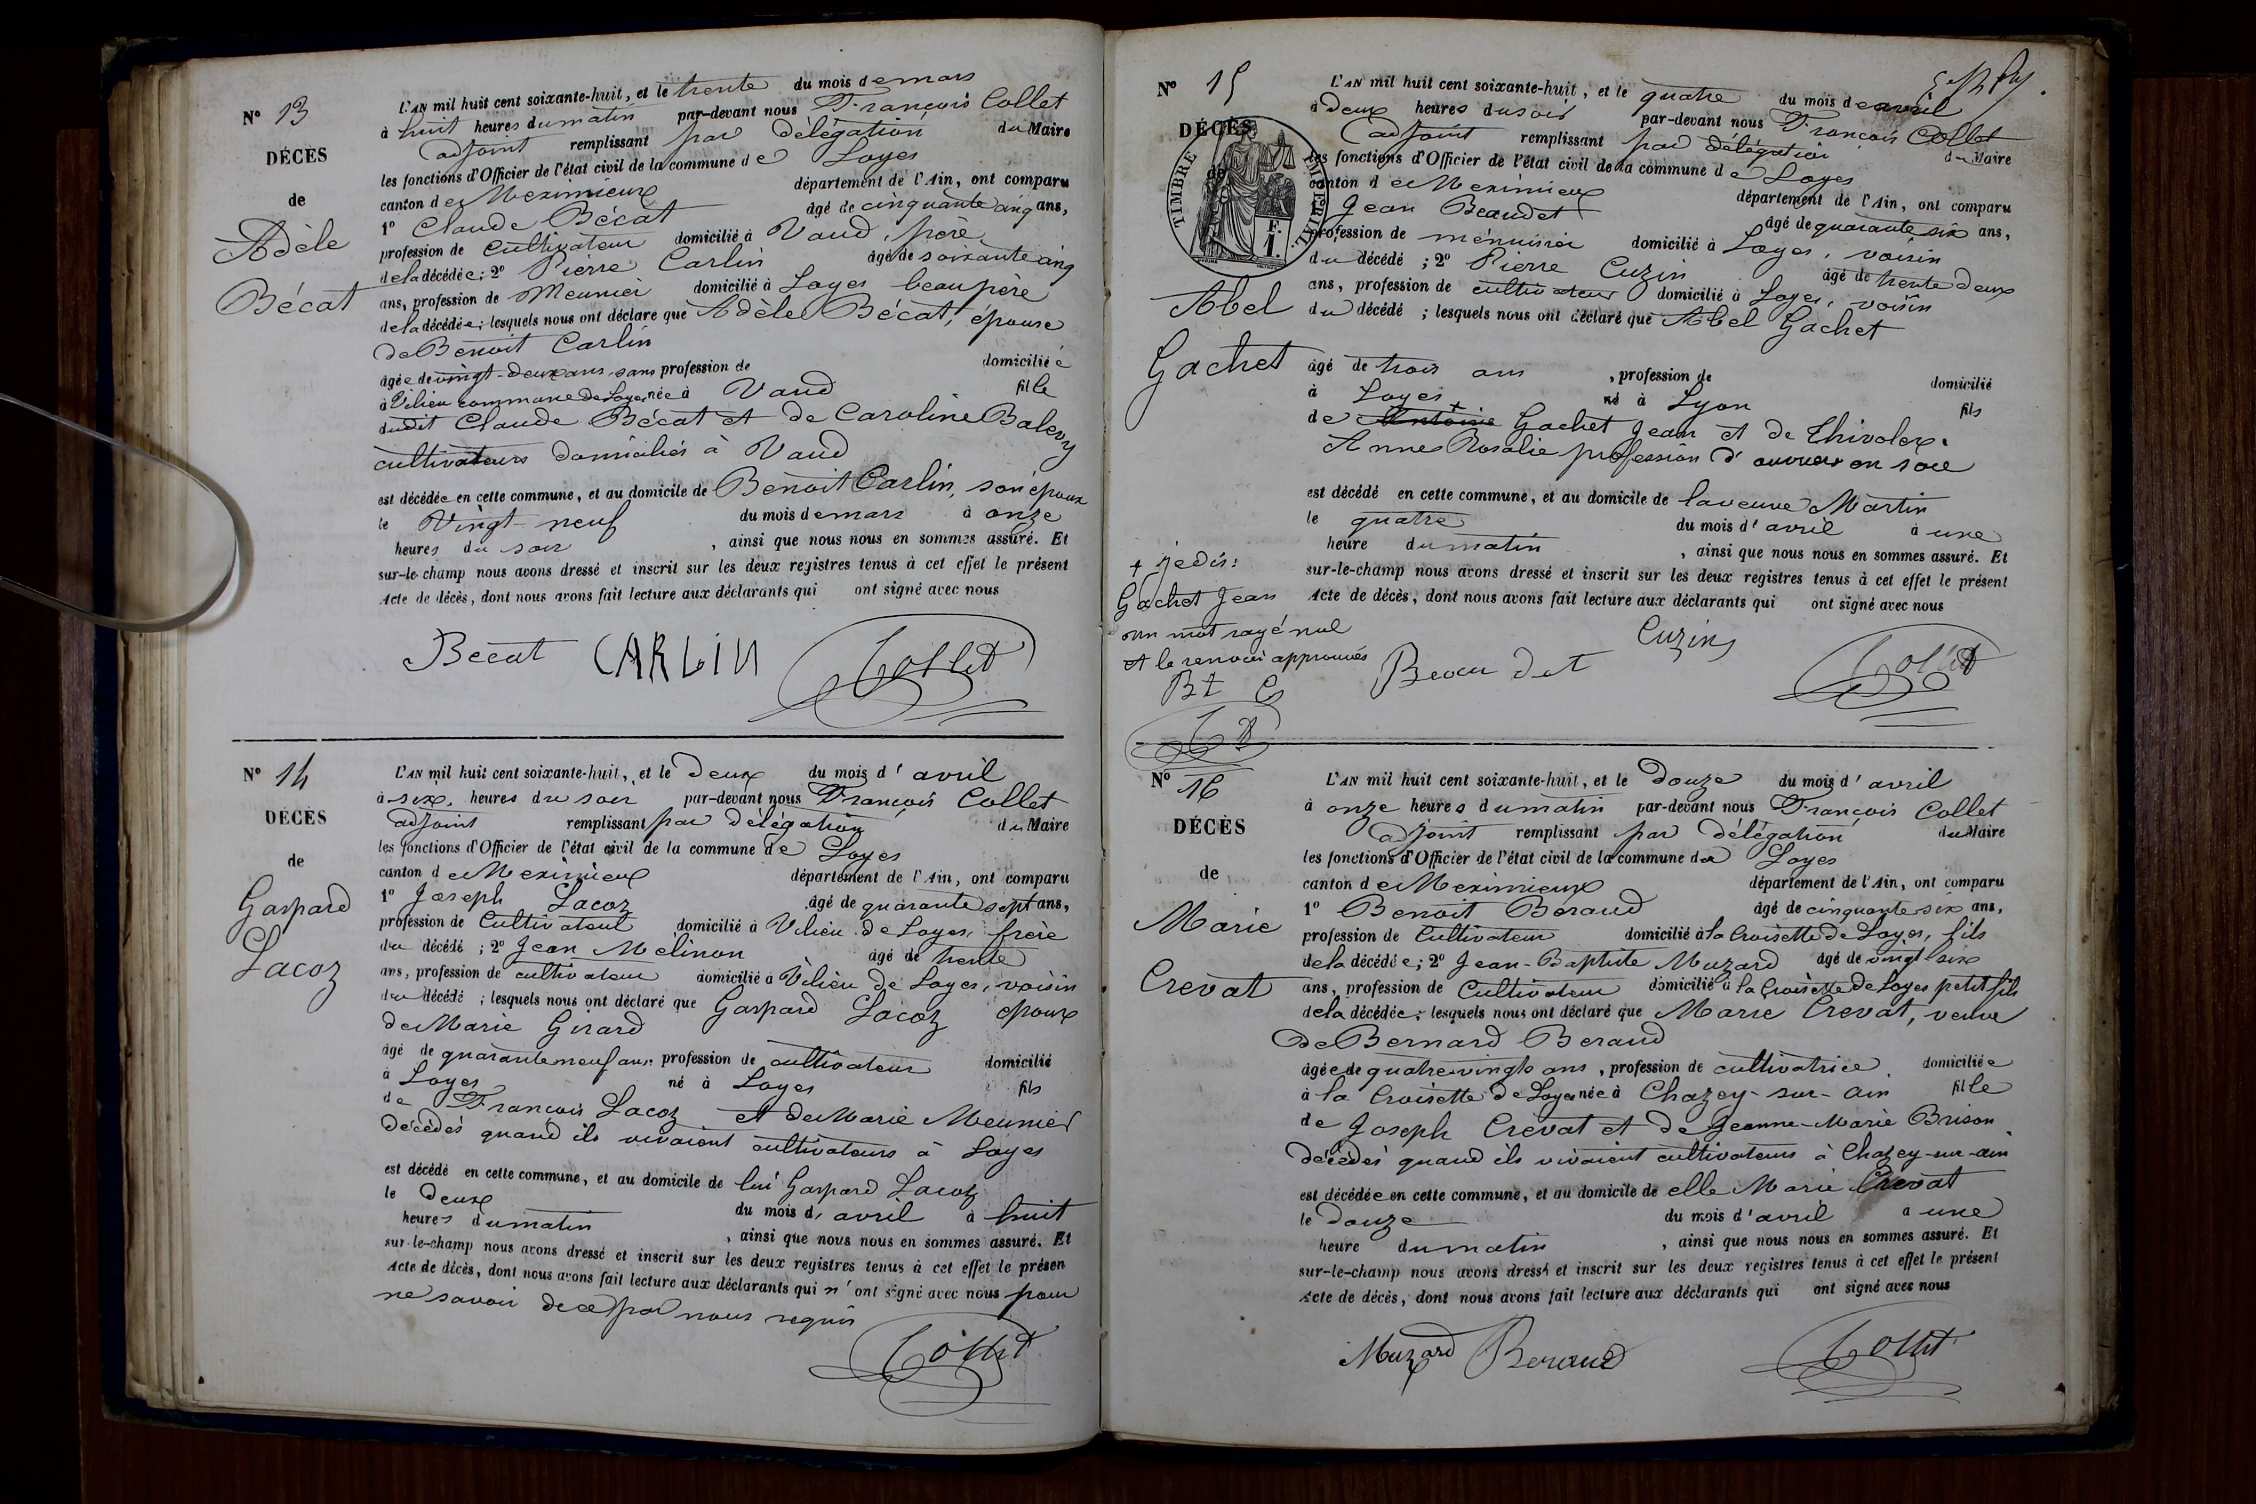 N° 13
DÉCÈS
de
Adèle
Bécat
L'AN mil huit cent soixante-huit, et le trente du mois de mars
à huit heures du matin par-devant nous François Collet
adjoint remplissant par délégation du Maire
les fonctions d'Officier de l'état civil de la commune de Loyes
canton de Meximieux département de l'Ain, ont comparu
1° Claude Bécat âgé de cinquante cinq ans,
profession de cultivateur domicilié à Vaud, père
de la décédée; 2° Pierre Carlin âgé de soixante cinq
ans, profession de Meunier domicilié à Loyes beau père
de la décédée; lesquels nous ont déclaré que Adèle Bécat, épouse
de Benoit Carlin
âgée de vingt-deux ans, sans profession de domicilié e
à Vilieu commune de Loyes née à Vaud fille
dudit Claude Bécat et de Caroline Balevry
cultivateurs domiciliés à Vaud
est décédée en cette commune, et au domicile de Benoit Carlin, son époux
le vingt-neuf du mois de mars à onze
heures du soir , ainsi que nous nous en sommes assuré. Et
sur-le-champ nous avons dressé et inscrit sur les deux registres tenus à cet effet le présent
Acte de décès, dont nous avons fait lecture aux déclarants qui ont signé avec nous
Becat CARLIN Collet
N° 14
DÉCÈS
de
Gaspard
Lacoz
L'AN mil huit cent soixante-huit, et le deux du mois d'avril
à six heures du soir par-devant nous François Collet
adjoint remplissant par délégation du Maire
les fonctions d'Officier de l'état civil de la commune de Loyes
canton de Meximieux département de l'Ain, ont comparu
1° Joseph Lacoz âgé de quarante sept ans,
profession de Cultivateur domicilié à Vilieu de Loyes, frère
du décédé ; 2° Jean Mélinon âgé de trente
ans, profession de cultivateur domicilié à Vilieu de Loyes, voisin
du décédé ; lesquels nous ont déclaré que Gaspard Lacoz époux
de Marie Girard
âgé de quarante neuf ans profession de cultivateur domicilié
à Loyes né à Loyes fils
de François Lacoz et de Marie Meunier
décédés quand ils vivaient cultivateurs à Loyes
est décédé en cette commune, et au domicile de lui Gaspard Lacoz
le deux du mois d'avril à huit
heures du matin , ainsi que nous nous en sommes assuré. Et
sur-le-champ nous avons dressé et inscrit sur les deux registres tenus à cet effet le présen
Acte de décès, dont nous avons fait lecture aux déclarants qui n'ont signé avec nous pour
ne savoir de ce par nous requis
Collet
N° 15
DÉCÈS
de
TIMBRE IMPÉRIAL
Abel
Gachet
L'AN mil huit cent soixante-huit, et le quatre du mois de avril
à deux heures du soir par-devant nous François Collet
adjoint remplissant par délégation du Maire
les fonctions d'Officier de l'état civil de la commune de Loyes
canton de Meximieux département de l'Ain, ont comparu
Jean Beaudet âgé de quarante six ans,
profession de ménuisier domicilié à Loyes, voisin
du décédé ; 2° Pierre Cuzin âgé de trente deux
ans, profession de cultivateur domicilié à Loyes, voisin
du décédé ; lesquels nous ont déclaré que Abel Gachet
âgé de trois ans , profession de domicilié
à Loyes né à Lyon fils
de + Antoine Gachet Jean et de Thivolex
Anne Rosalie profession d'ouvriers en soie
est décédé en cette commune, et au domicile de la veuve Martin
le quatre du mois d'avril à une
heure du matin , ainsi que nous nous en sommes assuré. Et
sur-le-champ nous avons dressé et inscrit sur les deux registres tenus à cet effet le présent
Acte de décès, dont nous avons fait lecture aux déclarants qui ont signé avec nous
+ je dis:
Gachet Jean
un mot rayé nul
et le renvoi approuvés
Bt C
Beaudet Cuzin Collet
N° 16
DÉCÈS
de
Marie
Crevat
L'AN mil huit cent soixante-huit, et le douze du mois d'avril
à onze heures du matin par-devant nous François Collet
adjoint remplissant par délégation du Maire
les fonctions d'Officier de l'état civil de la commune de Loyes
canton de Meximieux département de l'Ain, ont comparu
1° Benoit Béraud âgé de cinquante six ans,
profession de Cultivateur domicilié à la Croisette de Loyes, fils
de la décédée; 2° Jean-Baptiste Muzard âgé de vingt six
ans, profession de Cultivateur domicilié à la Croisette de Loyes petit fils
de la décédée; lesquels nous ont déclaré que Marie Crevat, veuve
de Bernard Beraud
âgée de quatre vingts ans , profession de cultivatrice domiciliée
à la Croisette de Loyes née à Chazey-sur-ain fille
de Joseph Crevat et de Jeanne-Marie Brison
décédés quand ils vivaient cultivateurs à Chazey-sur-ain
est décédée en cette commune, et au domicile de elle Marie Crevat
le douze du mois d'avril à une
heure du matin , ainsi que nous nous en sommes assuré. Et
sur-le-champ nous avons dressé et inscrit sur les deux registres tenus à cet effet le présent
Acte de décès, dont nous avons fait lecture aux déclarants qui ont signé avec nous
Muzard Beraud Collet